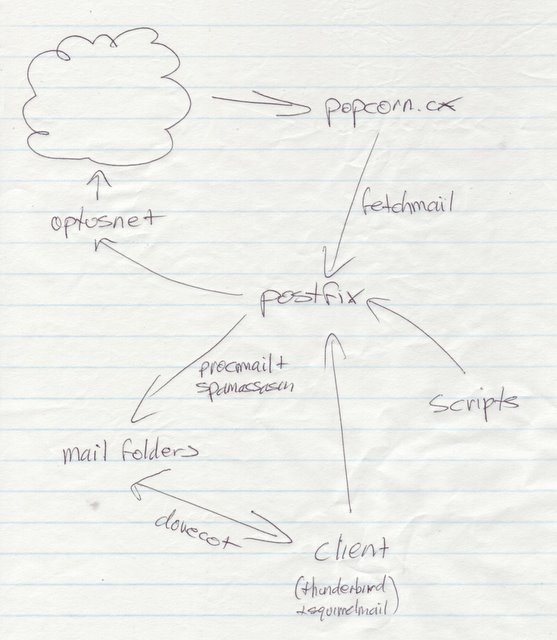 popcorn.cx
fetchmail
optusnet
postfix
procmail +
spamassassin
scripts
mail folders
dovecot
client
(thunderbird
+ squirrelmail)